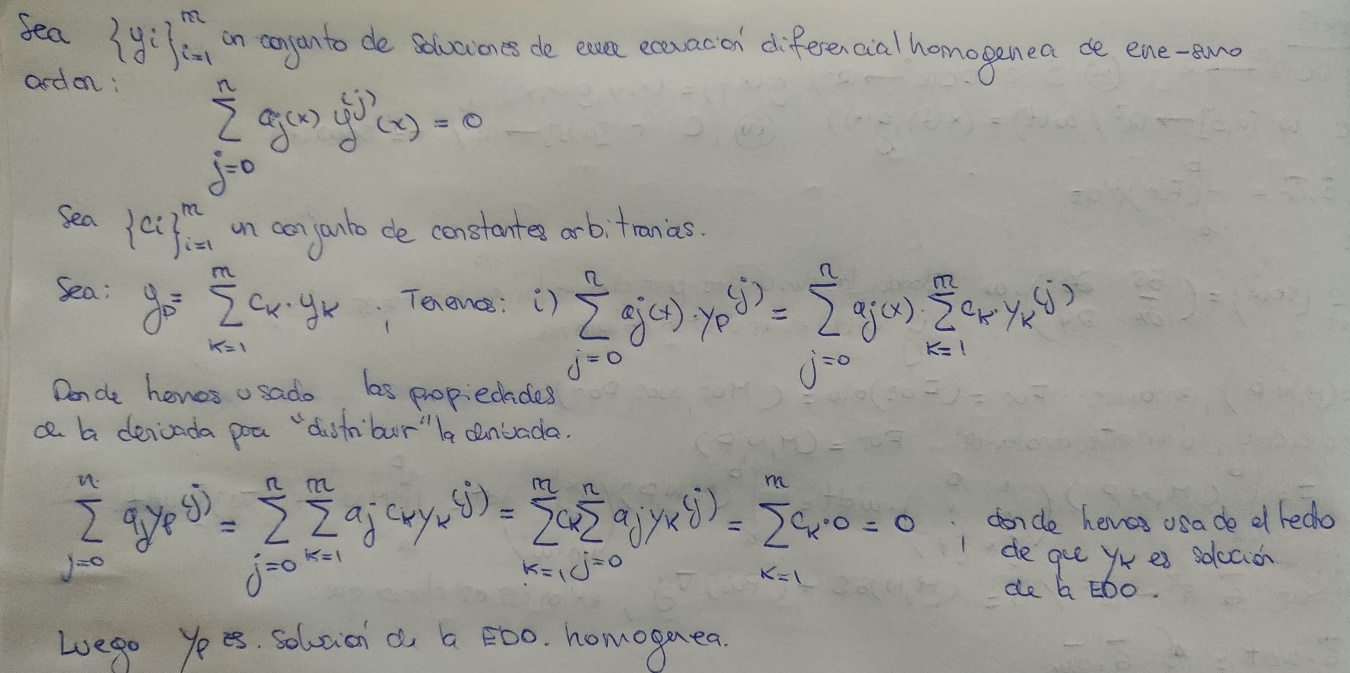 Sea {yi}_{i=1}^{m} un conjunto de soluciones de ecuación diferencial homogenea de ene-simo
orden:
\sum_{j=0}^{n} aj(x) y^{(j)}(x) = 0
Sea {ci}_{i=1}^{m} un conjunto de constantes arbitrarias.
Sea: yp = \sum_{k=1}^{m} ck · yk ; Tenemos: i) \sum_{j=0}^{n} aj(x) · yp^{(j)} = \sum_{j=0}^{n} aj(x) · \sum_{k=1}^{m} ck · yk^{(j)}
Donde hemos usado las propiedades
de la derivada para "distribuir" la derivada.
\sum_{j=0}^{n} aj yp^{(j)} = \sum_{j=0}^{n} \sum_{k=1}^{m} aj ck yk^{(j)} = \sum_{k=1}^{m} ck \sum_{j=0}^{n} aj yk^{(j)} = \sum_{k=1}^{m} ck · 0 = 0 ; donde hemos usado el hecho
de que yk es solución
de la EDO.
Luego yp es. solución de la EDO. homogenea.